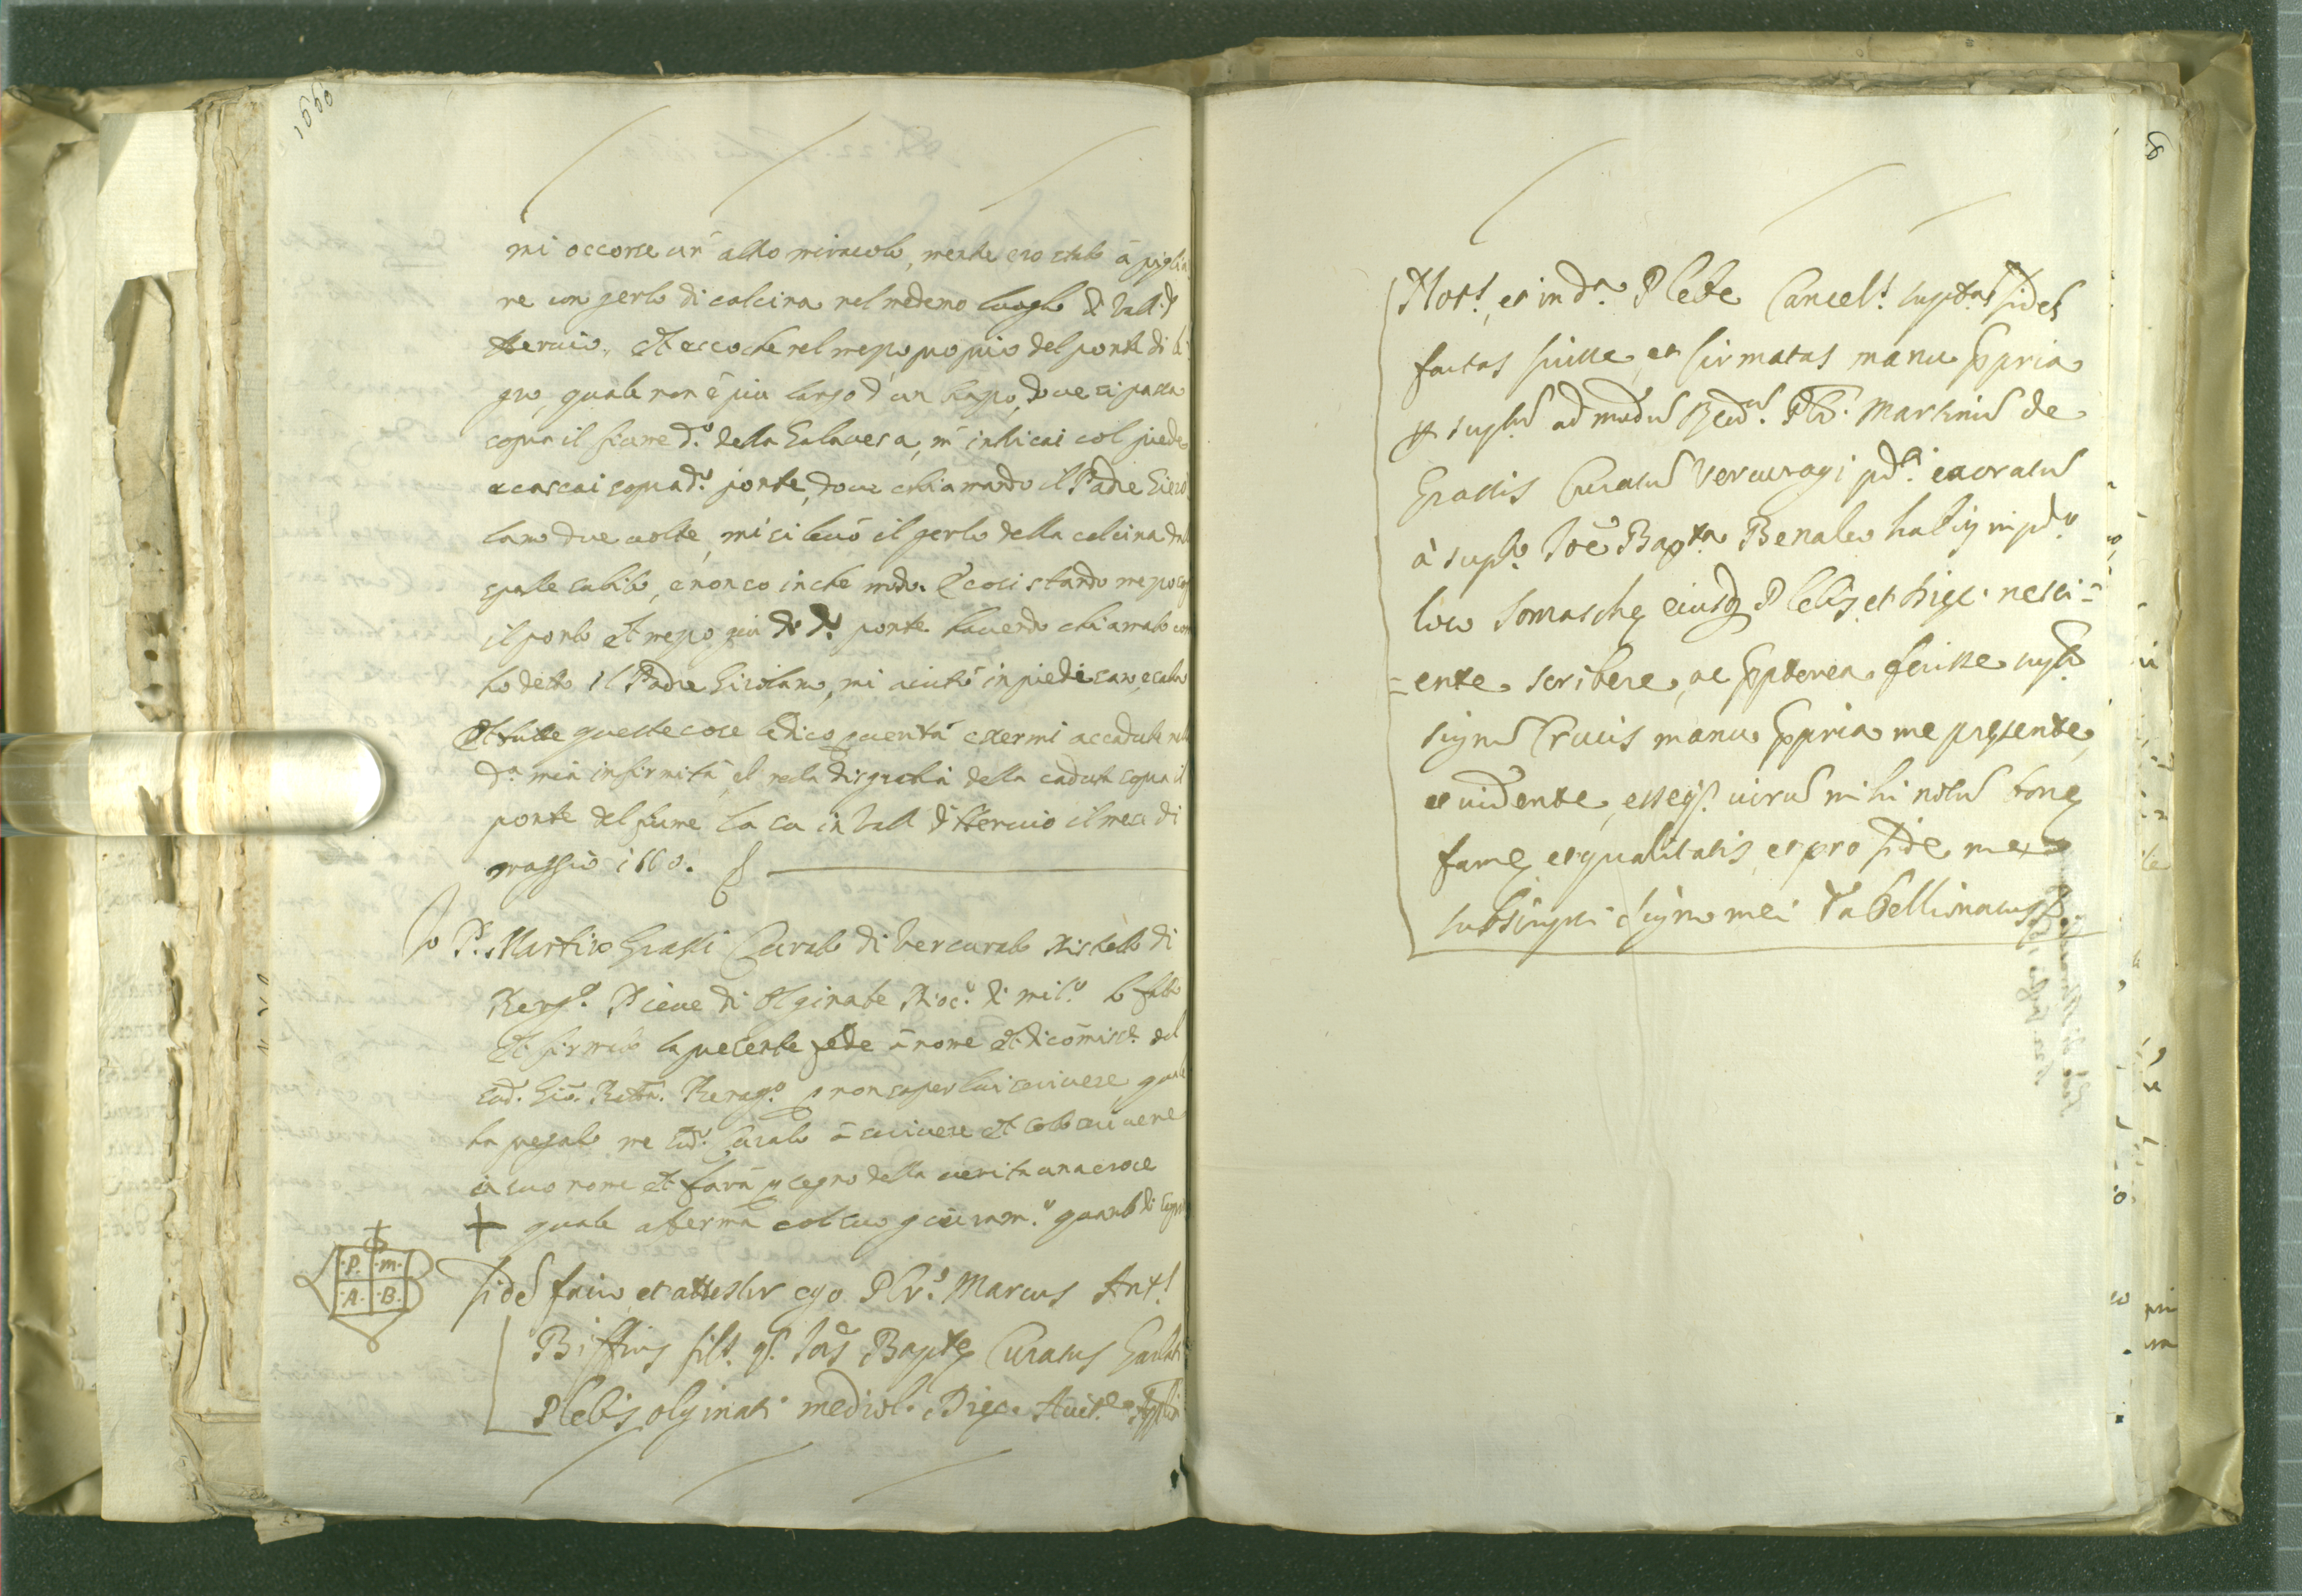 1660
mi occorse un altro miracolo, mentre ero stato à piglia
re un gerlo di calcina nel medemo luogho di Vall d
Heruio, et ecco che nel mezo, proprio del ponte di
quale non è piu largo d'un trapo, doue si passa
sopra il fiume d.º della Galauesa, m' intricai col piede
e cascai sopra d.º ponte, doue chiamando il Padre Giero
lamo due uolte, mi si leuò il gerlo della calcina dal
spalle subito, e non so in che modo. E cosi stando mezo sop
il ponte et mezo giu de d.º ponte hauendo chiamato com
ho detto il Padre Girolamo, mi aiutò in piedi sano, e saluo
Et tutte queste cose le dico p uerità essermi accadute nel
d.ª mia infirmità, et nela disgratia della caduta sopra il
ponte del fiume la su in Vall d'Heruio il mese di
maggio 1660.
Io P. Martino Grassi Curato di Vercurato distretto di
Berg.º Pieue di Olginate Dioc.' di Mil.º ho fatto
et firmato la presente fede à nome et di comiss.e del
sud.º Gio. Batta. Benag.º p non saper lui scriuere, quale
ha pregato me sud.º Curato à scriuere et sotto scriuere
in suo nome et farà p segno della uerita una croce
+ quale aferma col suo giuram.º quanto di sopra
P. M.
A. B.
Fidē facio, et attestor ego Pbr. Marcus Ant.
Biffius fil. q. Ioīs Baptę Curatus Garlati
Plebis Olginati mediol. Dięc. Auct.e Appli
8
Not., et in d.ª Plebe Cancel. supᵗᵃˢ fides
factas fuisse, et firmatas manu ppria
p supᵗū admodū Rēdū. Pbr. Martinū de
Grassis Curatū Vercuragi pd.i exoratū
à sup.to Ioē Bapta Benaleo habīs in pd.o
loco Somaschę eiusq Plebis, et Dięc. nesci=
=ente scribere, ac ppterea fecisse sup.tū
signū Crucis manu ppria me pręsente,
et uidente, esseq. uirū mihi notū bonę
famę, et qualitatis, et pro fide me
subscripsi signo mei Tabellionatus